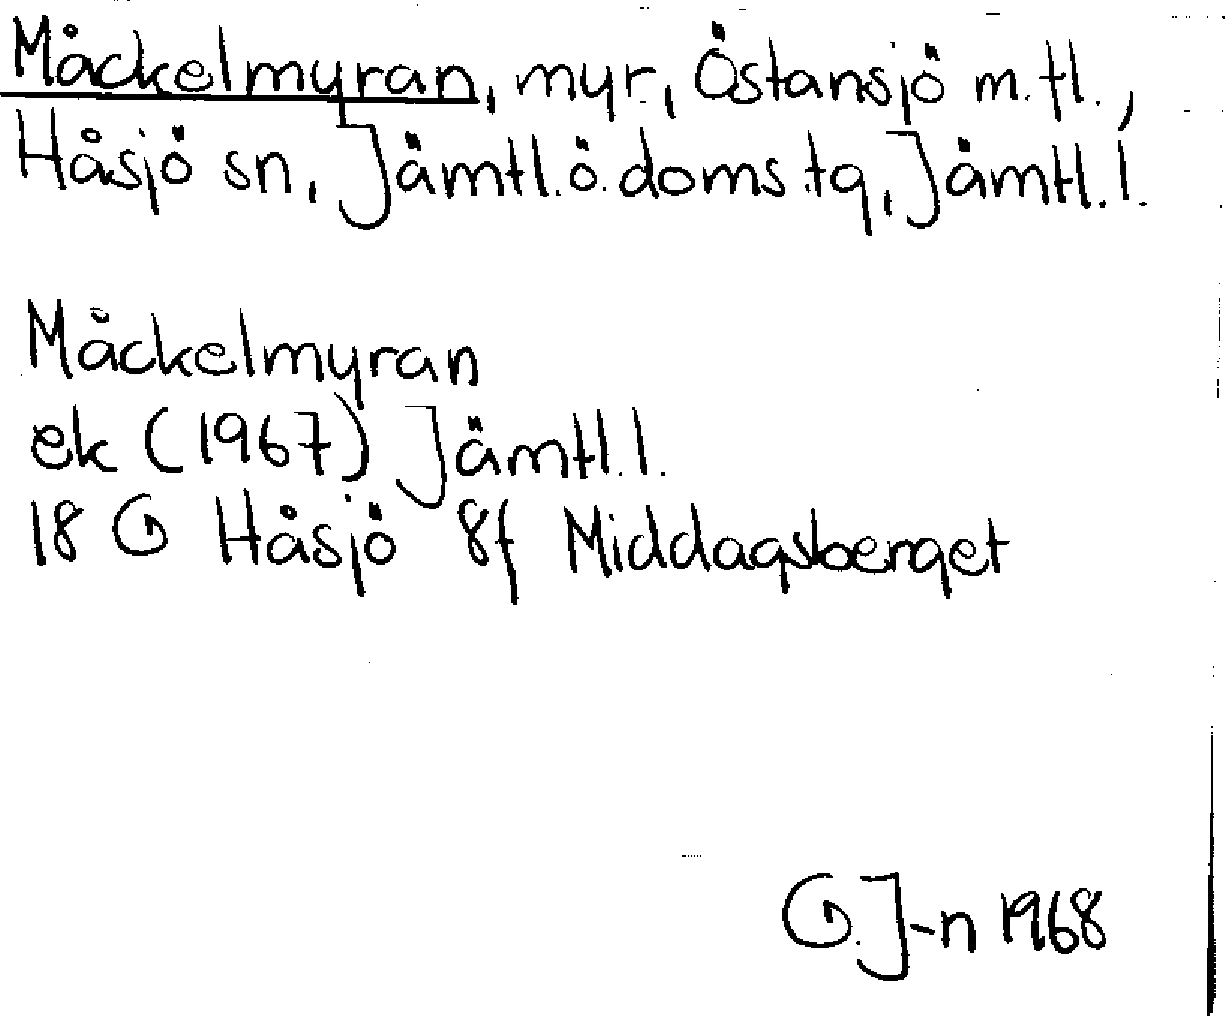 Måckelmyran, myr, Östansjö m.fl.,
Håsjö sn, Jämtl.ö.doms.tg, Jämtl.l.
Måckelmyran
ek (1967) Jämtl.l.
18 G Håsjö 8f Middagsberget
G.J-n 1968